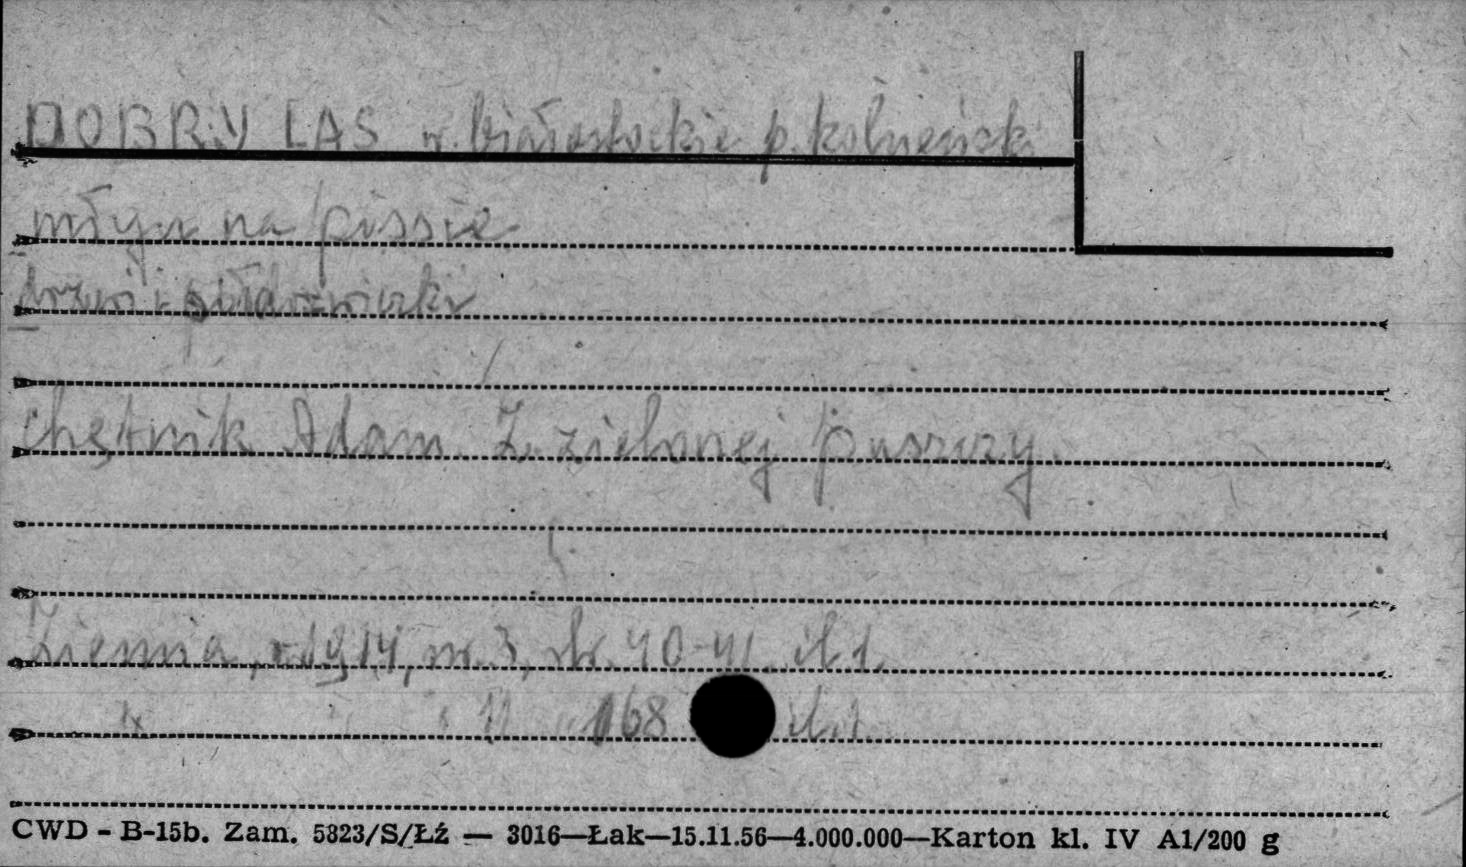 DOBRY LAS w. białostockie p. kolneński
młyn na pissie
drzwi i półdrzwiczki
Chętnik Adam. Z zielonej puszczy.
Ziemia, r. 1914, nr. 3, str. 40-41. il. 1.
" " 11 " 168 il. 1.
CWD - B-15b. Zam. 5823/S/Łź — 3016—Łak—15.11.56—4.000.000—Karton kl. IV A1/200 g